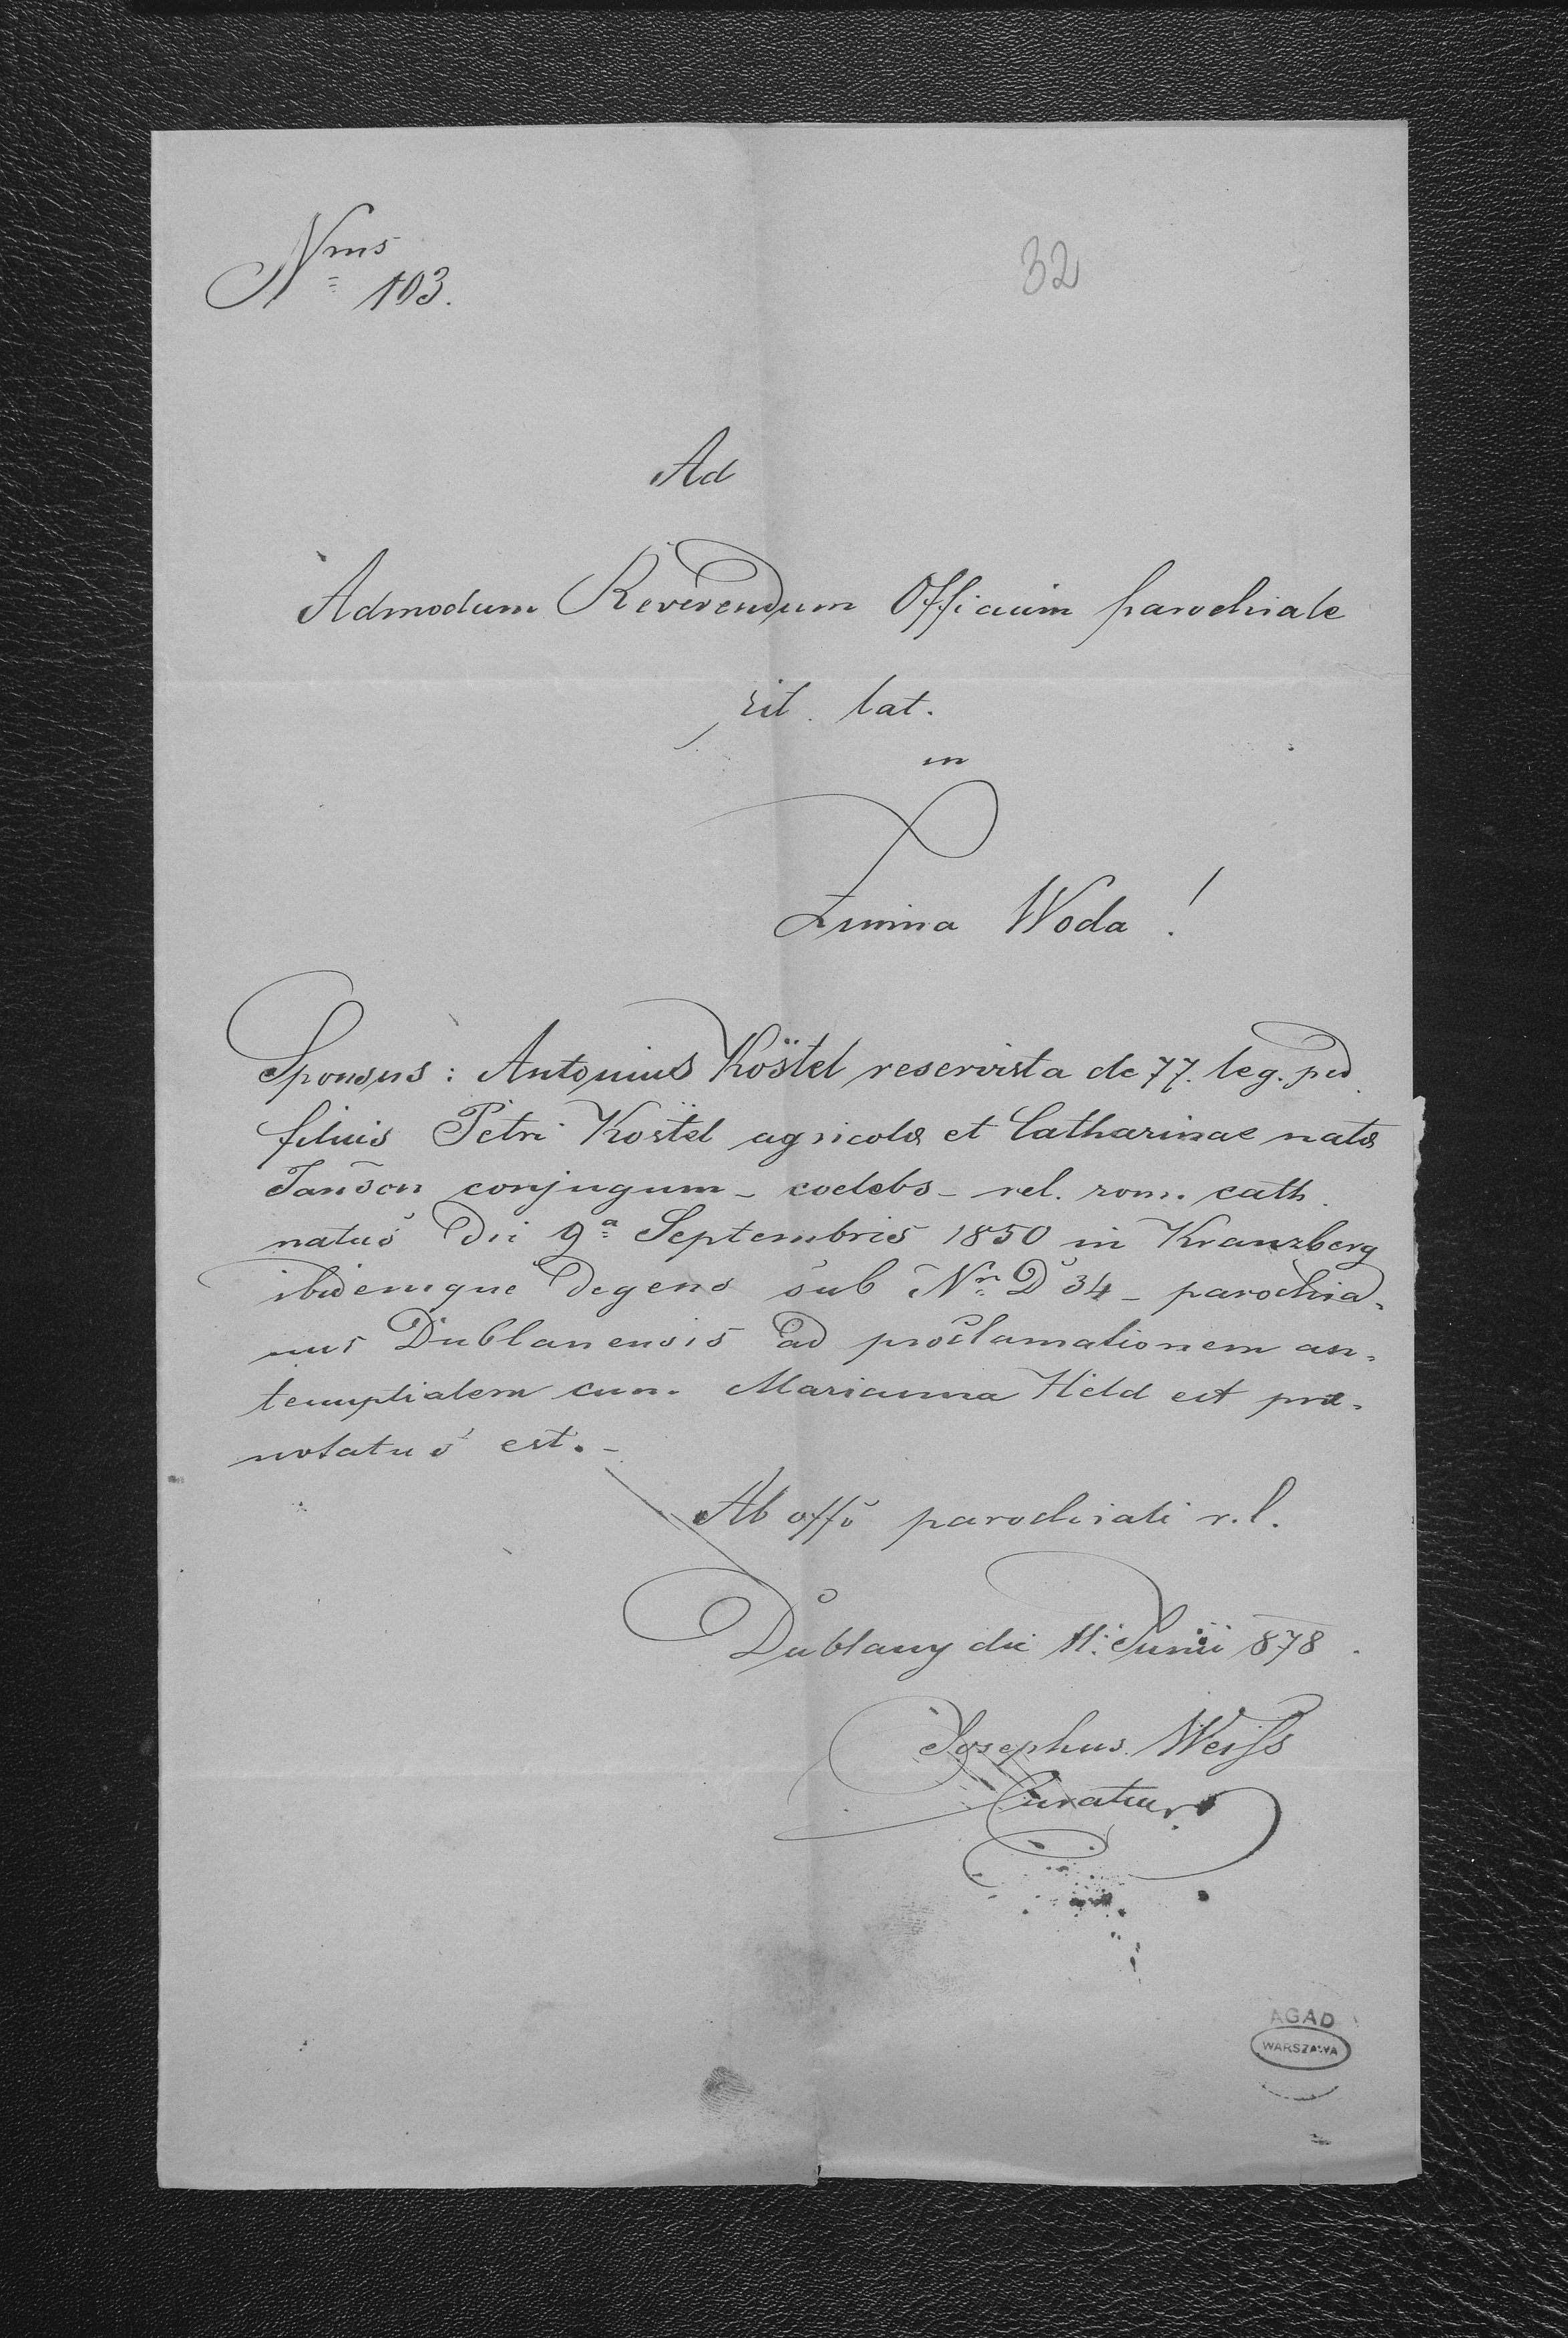 Nms 103.
32
Ad
Admodum Reverendum Officium parochiale
rit. lat.
in
Zimna Woda!
Sponsus: Antonius Köstel reservista de 77. leg. ped
filius Petri Köstel agricolæ et Catharinae natæ
Janson conjugum - coelebs - rel. rom. cath.
natus die 9ª Septembris 1850 in Kranzberg
ibidemque degens sub Nr. D 34 - parochia=
nus Dublanensis ad proclamationem an=
tenuptialem cum Marianna Held est præ=
notatus est.-
Ab offo parochiali r.l.
Dublany die 11. Junii 878.
Josephus Weiss
Curatus
AGAD
WARSZAWA